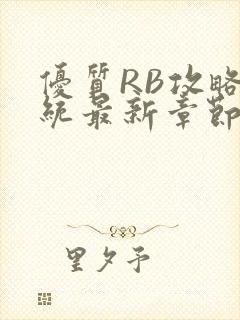 優質RB攻略
統最新章節
里夕予